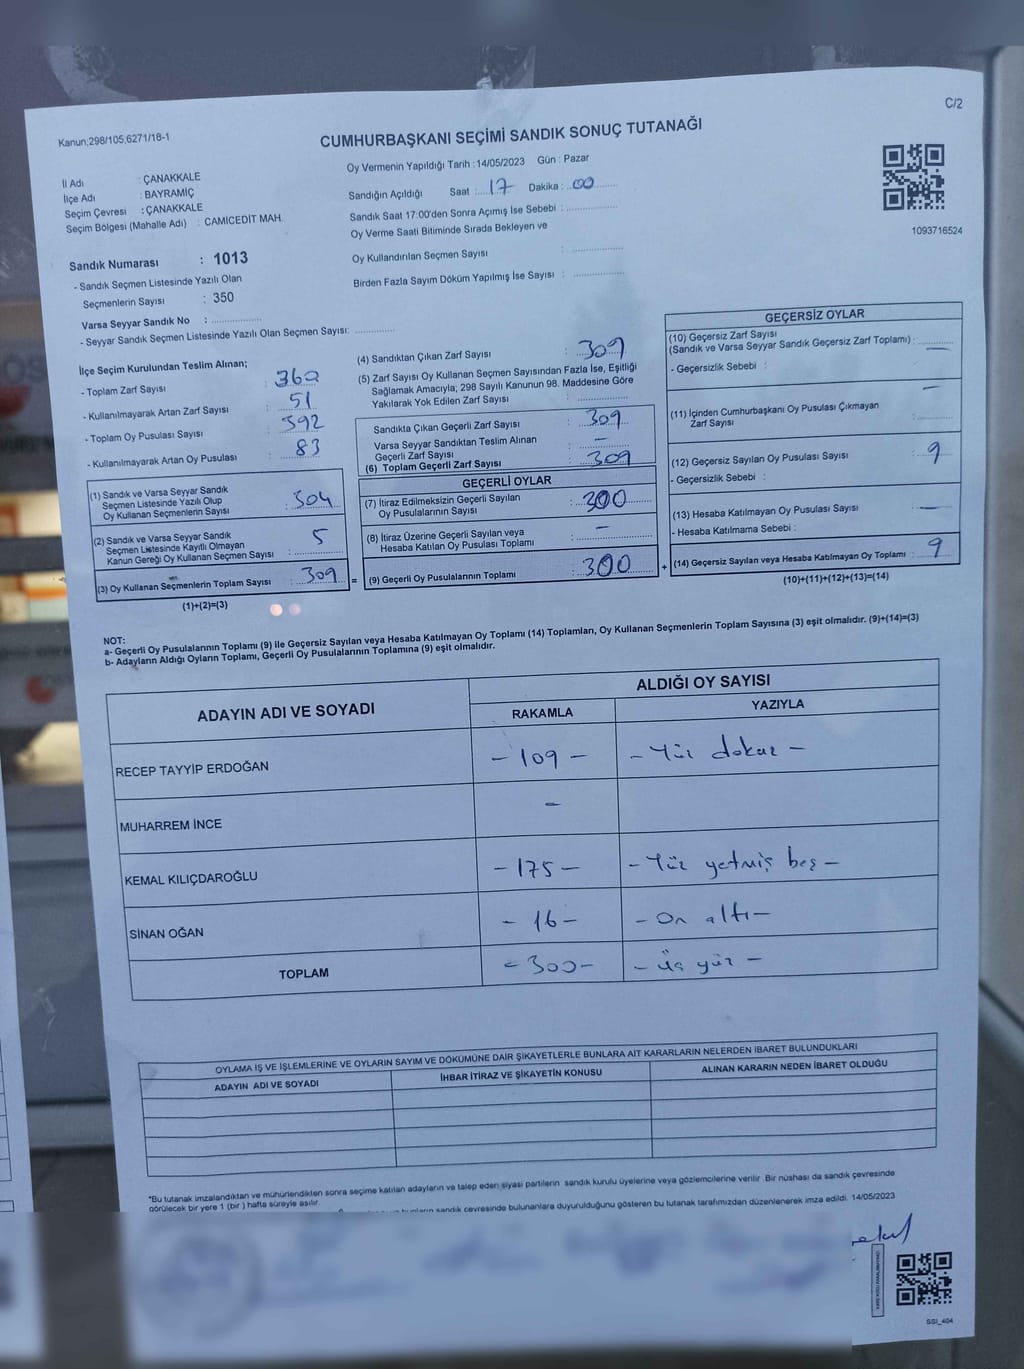 C/2
Kanun;298/105,6271/18-1
CUMHURBAŞKANI SEÇİMİ SANDIK SONUÇ TUTANAĞI
Oy Vermenin Yapıldığı Tarih : 14/05/2023 Gün : Pazar
İl Adı : ÇANAKKALE
İlçe Adı : BAYRAMİÇ
Seçim Çevresi : ÇANAKKALE
Seçim Bölgesi (Mahalle Adı) : CAMİCEDİT MAH.
Sandığın Açıldığı Saat : 17 Dakika : 00
Sandık Saat 17:00'den Sonra Açımış İse Sebebi :
Oy Verme Saati Bitiminde Sırada Bekleyen ve
Oy Kullandırılan Seçmen Sayısı :
Birden Fazla Sayım Döküm Yapılmış İse Sayısı :
1093716524
Sandık Numarası : 1013
- Sandık Seçmen Listesinde Yazılı Olan
Seçmenlerin Sayısı : 350
Varsa Seyyar Sandık No :
- Seyyar Sandık Seçmen Listesinde Yazılı Olan Seçmen Sayısı:
İlçe Seçim Kurulundan Teslim Alınan;
- Toplam Zarf Sayısı : 360
- Kullanılmayarak Artan Zarf Sayısı : 51
- Toplam Oy Pusulası Sayısı : 392
- Kullanılmayarak Artan Oy Pusulası : 83
(1) Sandık ve Varsa Seyyar Sandık
Seçmen Listesinde Yazılı Olup
Oy Kullanan Seçmenlerin Sayısı : 304
(2) Sandık ve Varsa Seyyar Sandık
Seçmen Listesinde Kayıtlı Olmayan
Kanun Gereği Oy Kullanan Seçmen Sayısı : 5
(3) Oy Kullanan Seçmenlerin Toplam Sayısı : 309
(1)+(2)=(3)
(4) Sandıktan Çıkan Zarf Sayısı : 309
(5) Zarf Sayısı Oy Kullanan Seçmen Sayısından Fazla İse, Eşitliği
Sağlamak Amacıyla; 298 Sayılı Kanunun 98. Maddesine Göre
Yakılarak Yok Edilen Zarf Sayısı :
Sandıkta Çıkan Geçerli Zarf Sayısı : 309
Varsa Seyyar Sandıktan Teslim Alınan
Geçerli Zarf Sayısı : —
(6) Toplam Geçerli Zarf Sayısı : 309
GEÇERLİ OYLAR
(7) İtiraz Edilmeksizin Geçerli Sayılan
Oy Pusulalarının Sayısı : 300
(8) İtiraz Üzerine Geçerli Sayılan veya
Hesaba Katılan Oy Pusulası Toplamı : —
= (9) Geçerli Oy Pusulalarının Toplamı : 300
GEÇERSİZ OYLAR
(10) Geçersiz Zarf Sayısı
(Sandık ve Varsa Seyyar Sandık Geçersiz Zarf Toplamı) : —
- Geçersizlik Sebebi :
(11) İçinden Cumhurbaşkanı Oy Pusulası Çıkmayan
Zarf Sayısı : —
(12) Geçersiz Sayılan Oy Pusulası Sayısı : 9
- Geçersizlik Sebebi :
(13) Hesaba Katılmayan Oy Pusulası Sayısı : —
- Hesaba Katılmama Sebebi :
+ (14) Geçersiz Sayılan veya Hesaba Katılmayan Oy Toplamı : 9
(10)+(11)+(12)+(13)=(14)
NOT:
a- Geçerli Oy Pusulalarının Toplamı (9) ile Geçersiz Sayılan veya Hesaba Katılmayan Oy Toplamı (14) Toplamları, Oy Kullanan Seçmenlerin Toplam Sayısına (3) eşit olmalıdır. (9)+(14)=(3)
b- Adayların Aldığı Oyların Toplamı, Geçerli Oy Pusulalarının Toplamına (9) eşit olmalıdır.
ADAYIN ADI VE SOYADI
ALDIĞI OY SAYISI
RAKAMLA YAZIYLA
RECEP TAYYİP ERDOĞAN - 109 - - Yüz dokuz -
MUHARREM İNCE -
KEMAL KILIÇDAROĞLU - 175 - - Yüz yetmiş beş -
SİNAN OĞAN - 16 - - On altı -
TOPLAM - 300 - - üç yüz -
OYLAMA İŞ VE İŞLEMLERİNE VE OYLARIN SAYIM VE DÖKÜMÜNE DAİR ŞİKAYETLERLE BUNLARA AİT KARARLARIN NELERDEN İBARET BULUNDUKLARI
ADAYIN ADI VE SOYADI İHBAR İTİRAZ VE ŞİKAYETİN KONUSU ALINAN KARARIN NEDEN İBARET OLDUĞU
*Bu tutanak imzalandıktan ve mühürlendikten sonra seçime katılan adayların ve talep eden siyasi partilerin sandık kurulu üyelerine veya gözlemcilerine verilir. Bir nüshası da sandık çevresinde
görülecek bir yere 1 (bir ) hafta süreyle asılır.
sandık çevresinde bulunanlara duyurulduğunu gösteren bu tutanak tarafımızdan düzenlenerek imza edildi. 14/05/2023
SSI_404